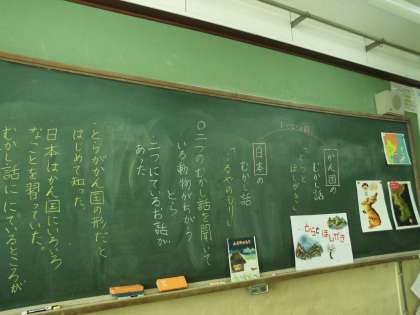 かん国の
むかし話
とらと
ほしがき
日本の
むかし話
ふるやのもり
〇二つのむかし話を聞いて
いる動物がちがう
とら
二つにているお話が
あった
とらがかん国の形だと
はじめて知った。
日本はかん国にいろいろ
なことを習っていた。
むかし話ににているところが
とらとほしがき